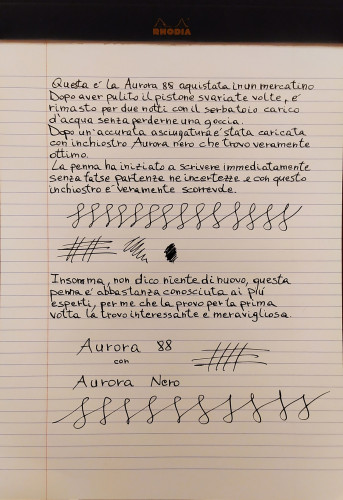 RHODIA
Questa é la Aurora 88 aquistata in un mercatino
Dopo aver pulito il pistone svariate volte, é
rimasto per due notti con il serbatoio carico
d'acqua senza perderne una goccia.
Dopo un'accurata asciugatura é stata caricata
con inchiostro Aurora nero che trovo veramente
ottimo.
La penna ha iniziato a scrivere immediatamente
senza false partenze ne incertezze e con questo
inchiostro é veramente scorrevole.
Insomma, non dico niente di nuovo, questa
penna é abbastanza conosciuta ai più
esperti, per me che la provo per la prima
volta la trovo interessante e meravigliosa
Aurora 88
con
Aurora Nero